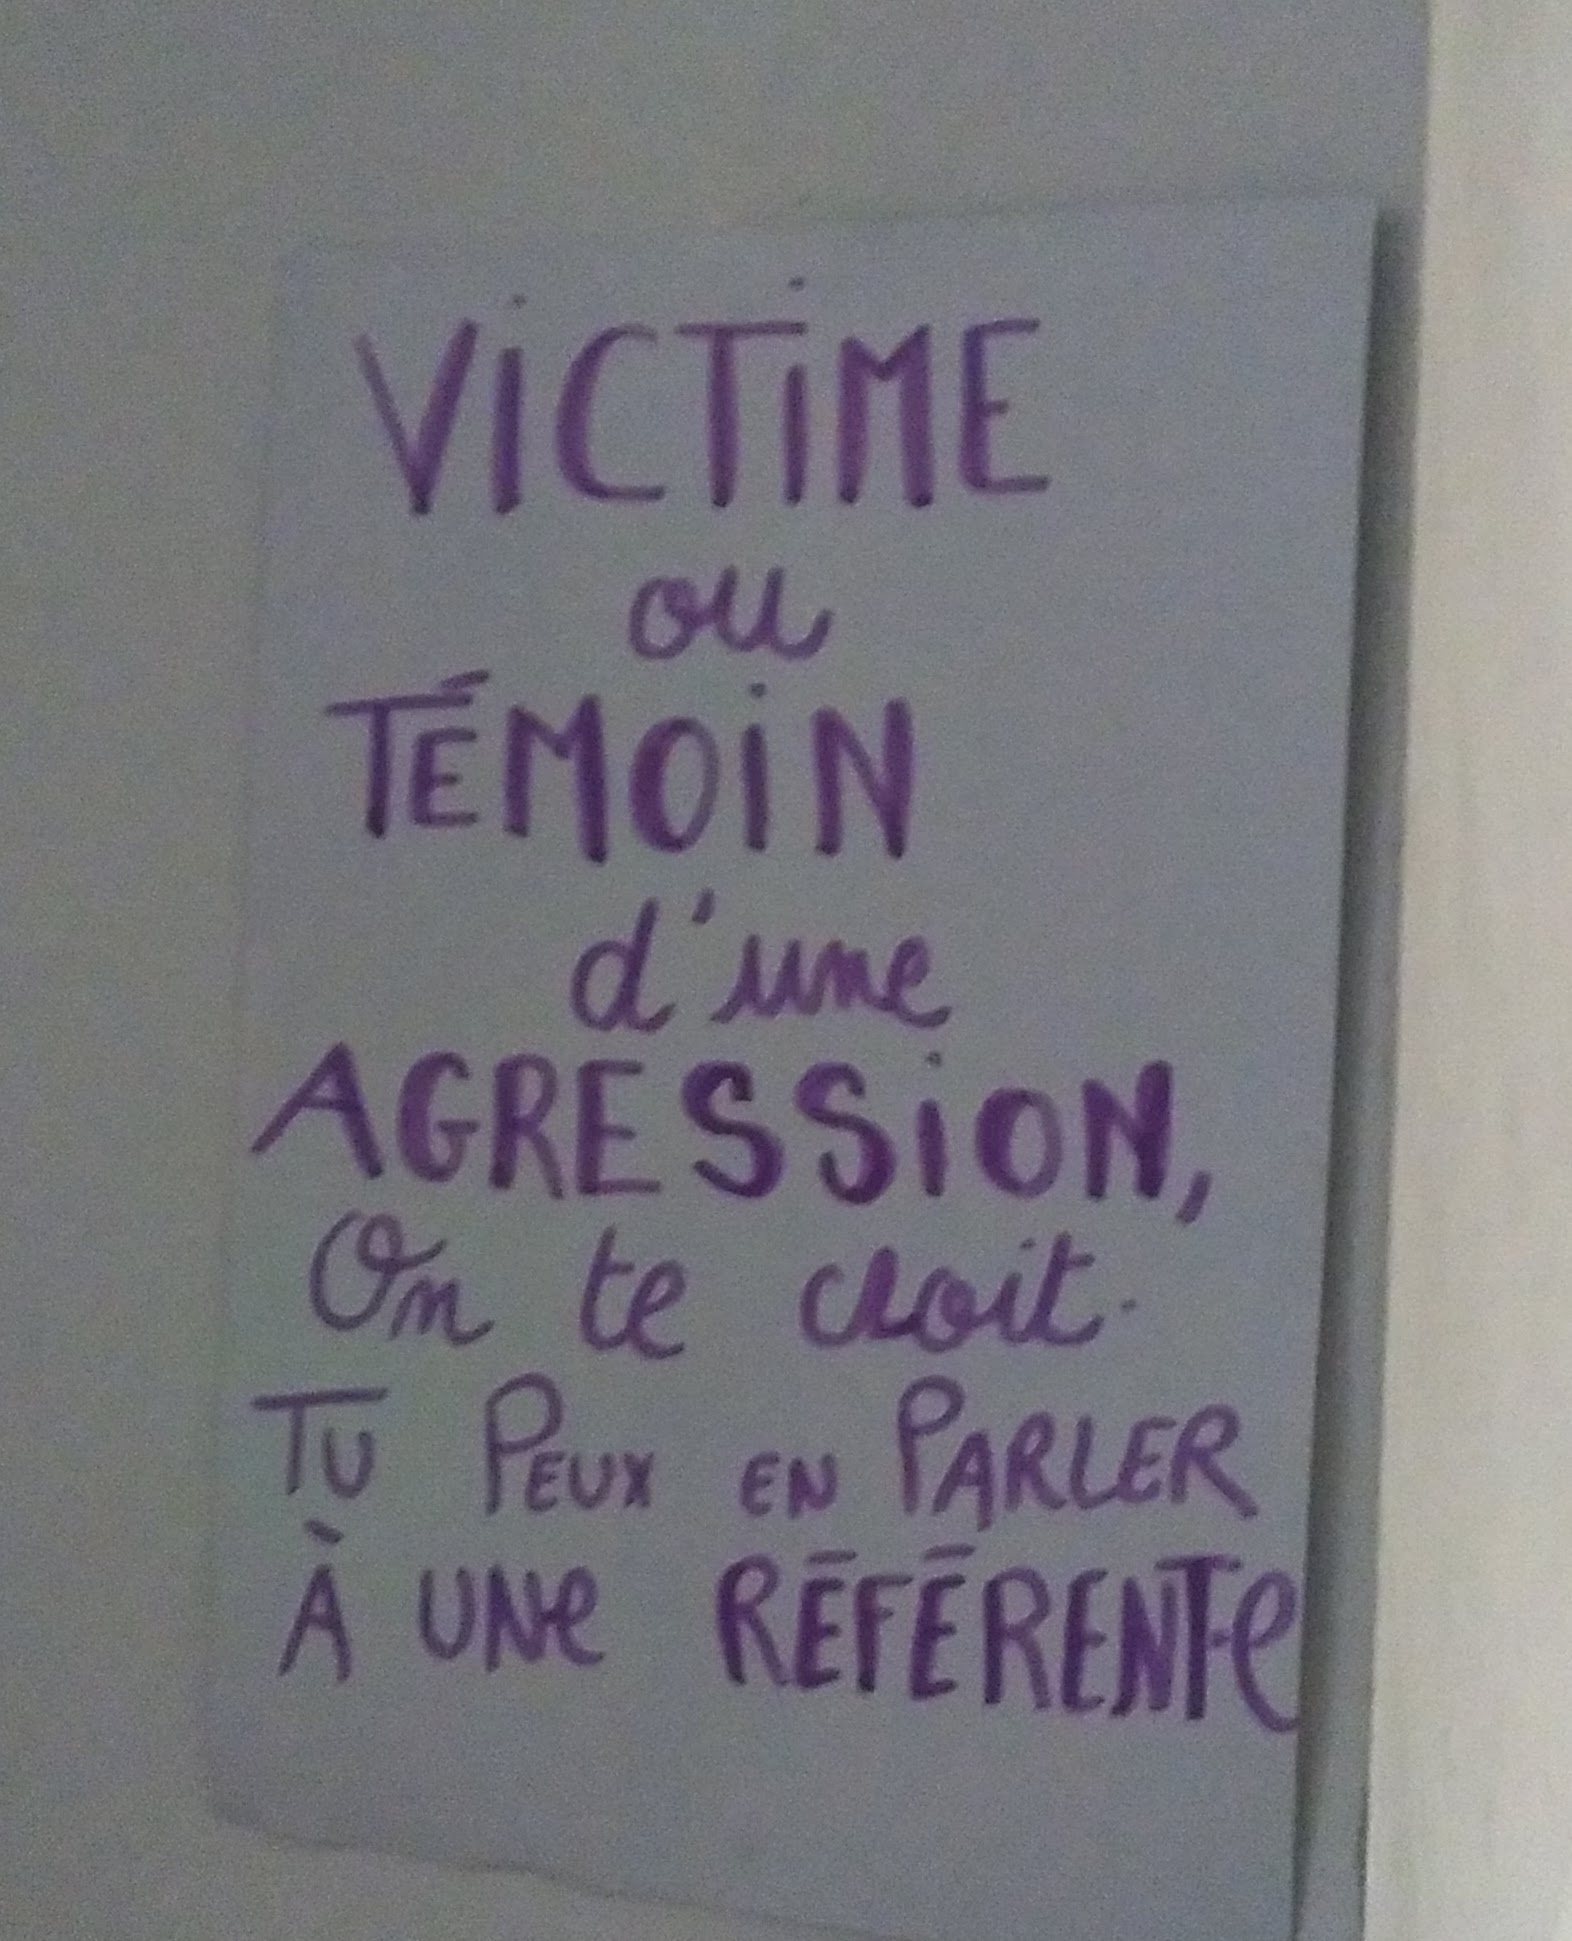 VICTIME
ou
TÉMOIN
d'une
AGRESSION,
On te croit.
TU PEUX EN PARLER
À UNe RÉFÉRENTe